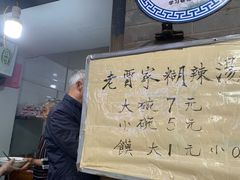 老曹家糊辣湯
大碗7元
小碗5元
饃 大1元 小0